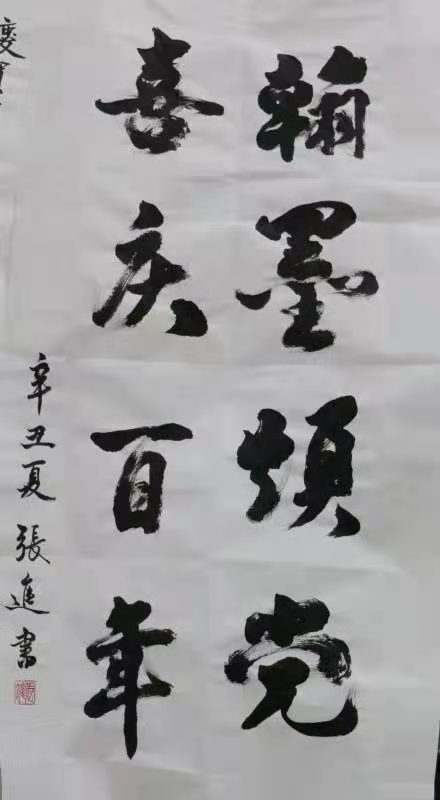 翰墨颂党
喜庆百年
辛丑夏張進书